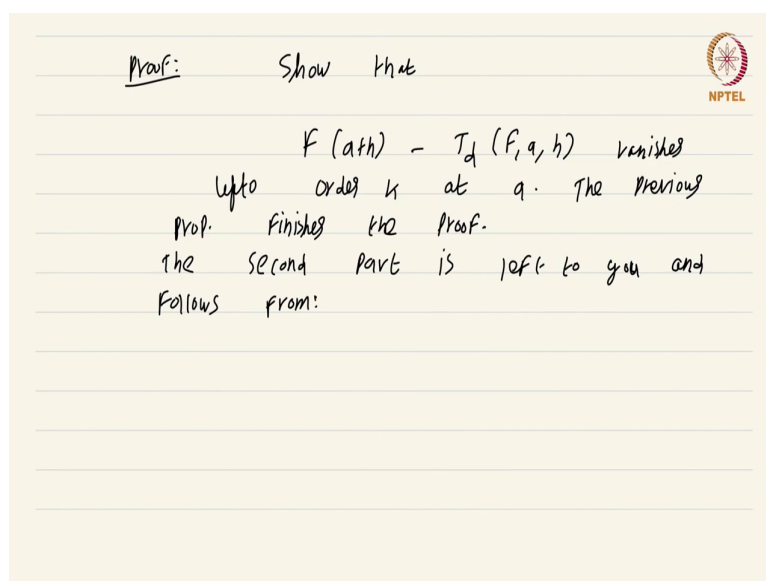 Proof: Show that
NPTEL
F(a+h) - T_d (F, a, h) vanishes
upto order k at a. The previous
prop. finishes the proof.
The second part is left to you and
follows from: